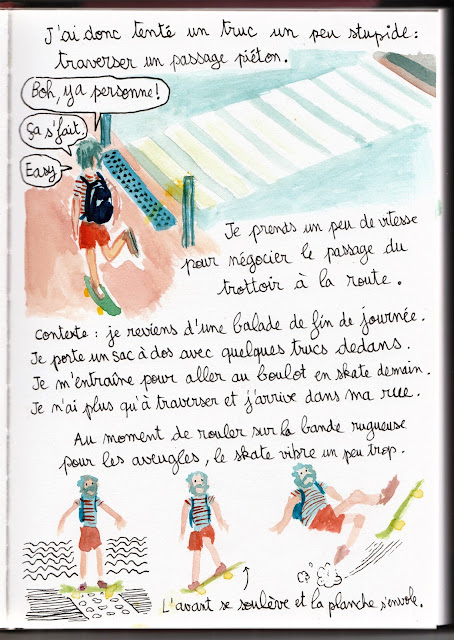 J'ai donc tenté un truc un peu stupide :
traverser un passage piéton.
Boh, y a personne !
Ça s'fait.
Easy
Je prends un peu de vitesse
pour négocier le passage du
trottoir à la route.
Contexte : je reviens d'une balade de fin de journée.
Je porte un sac à dos avec quelques trucs dedans.
Je m'entraîne pour aller au boulot en skate demain.
Je n'ai plus qu'à traverser et j'arrive dans ma rue.
Au moment de rouler sur la bande rugueuse
pour les aveugles, le skate vibre un peu trop.
L'avant se soulève et la planche s'envole.